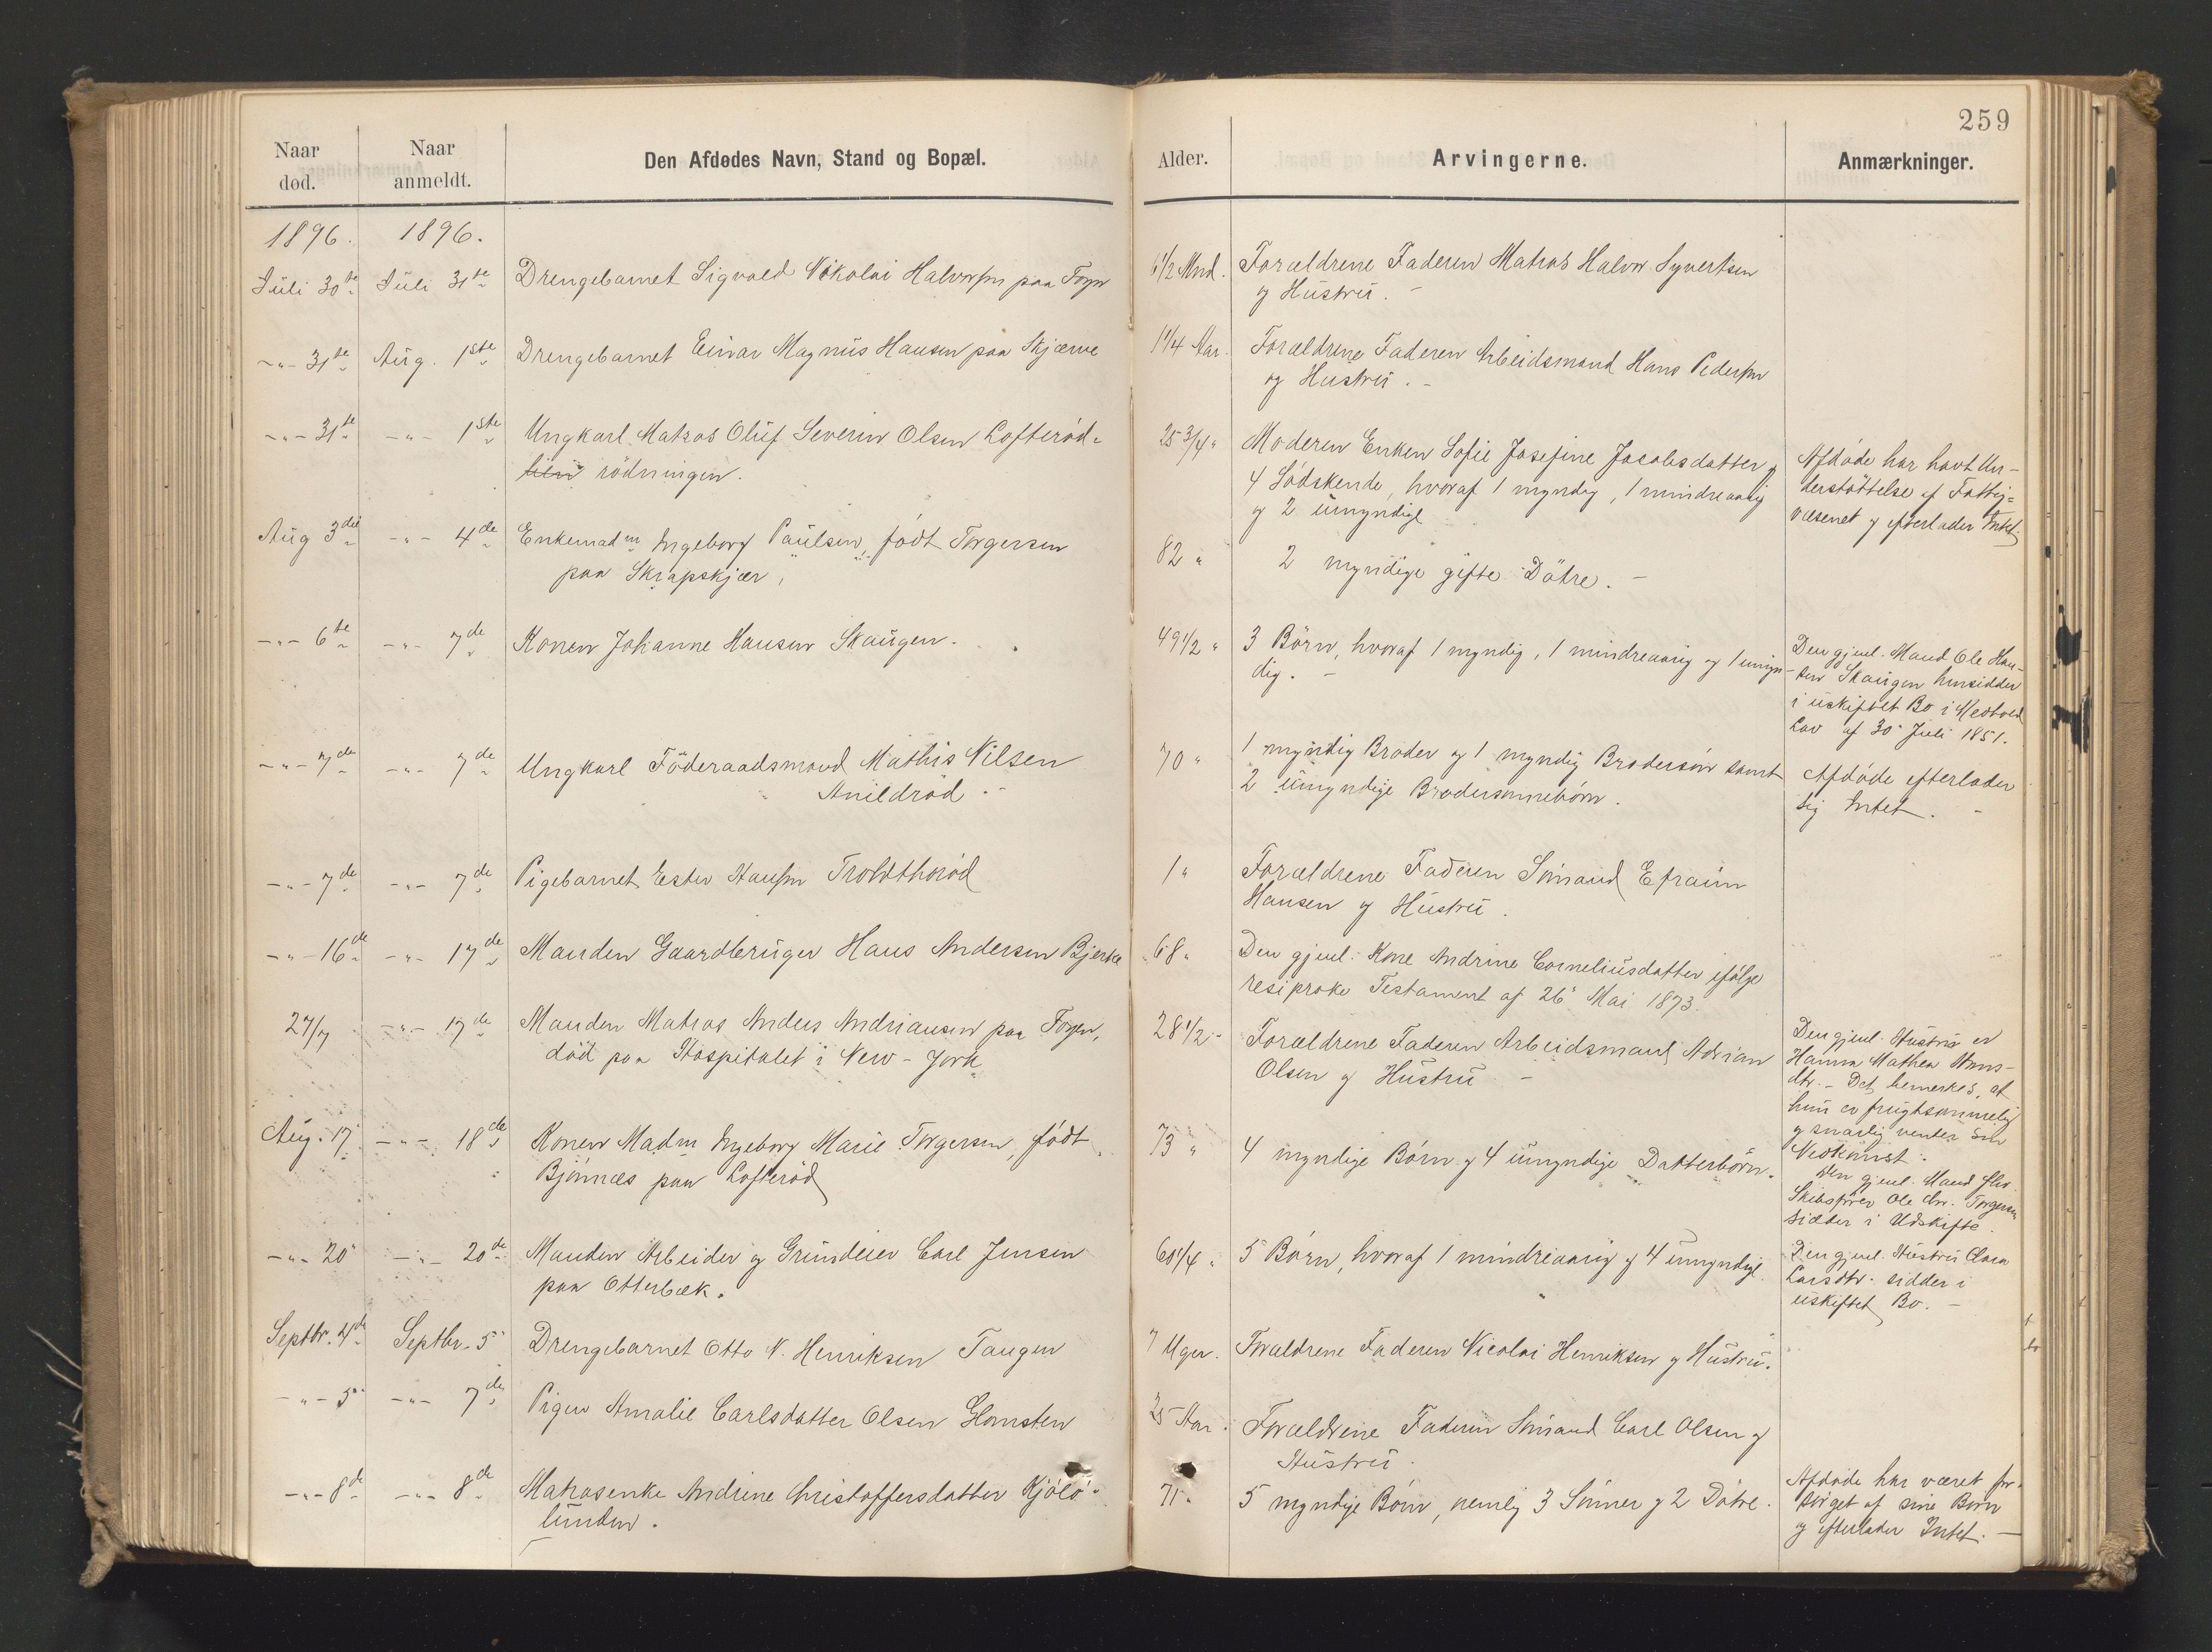 259
Naar død.
Naar anmeldt.
Den Afdødes Navn, Stand og Bopæl.
Alder.
Arvingerne.
Anmærkninger.
1896. 1896.
Juli 30te Juli 31te Drengebarnet Sigvald Nikolai Halvorsen paa 6 1/2 Mnd. Forældrene Faderen Matros Halvor Syvertsen
og Hustru. -
-"- 31te Aug. 1ste Drengebarnet Einar Magnus Hansen paa Skjærve 1 1/4 Aar. Forældrene Faderen Arbeidsmand Hans Pedersen
og Hustru. -
-"- 31te -"- 1ste Ungkarl Matros Oluf Severin Olsen Lofteröd- 25 3/4 " Moderen Enken Sofie Josefine Jacobsdatter og Afdöde har havt Un-
rödningen. 4 Södskende, hvoraf 1 myndig, 1 mindreaarig derstöttelse af Fattig-
og 2 umyndige væsenet og efterlader Intet.
Aug 3die -"- 4de Enkemadm Ingeborg Paulsen, födt Torgersen 82 " 2 myndige gifte Dötre. -
paa Skrapskjær,
-"- 6te -"- 7de Konen Johanne Hansen Skaugen. 49 1/2 " 3 Börn, hvoraf 1 myndig, 1 mindreaarig og 1 umyn- Den gjenl. Mand Ole Han-
dig. - sen Skaugen hensidder
i uskiftet Bo i Medhold
Lov af 30 Juli 1851.
-"- 7de -"- 7de Ungkarl Föderaadsmand Mathis Nilsen 70 " 1 myndig Broder og 1 myndig Brodersön samt Afdöde efterlader
Anildröd - 2 umyndige Brodersönnebörn. sig Intet. -
-"- 7de -"- 7de Pigebarnet Ester Hansen 1 " Forældrene Faderen Sömand Efraim
Hansen og Hustru.
-"- 16de -"- 17de Manden Gaardbruger Hans Andersen Bjerke 68 " Den gjenl. Kone Andrine Corneliusdatter ifölge
resiproke Testament af 26 Mai 1873.
27/7 -"- 17de Manden Matros Anders Andriansen paa 28 1/2 " Forældrene Faderen Arbeidsmand Adrian Den gjenl. Hustru er
död paa Hospitalet i New-York Olsen og Hustru - Hanna Mathea Hans-
dtr. - Det bemerkes, at
hun er frugtsommelig
og snarlig venter sin
Nedkomst.
Aug. 17 -"- 18de Konen Madm Ingeborg Marie Torgersen, födt 73 " 4 myndige Börn og 4 umyndige Datterbörn. Den gjenl. Mand
Bjönnæs paa Lofteröd Skibsförer Ole Chr. Torgersen
sidder i Udskifte.
-"- 20 -"- 20de Manden Arbeider og Grundeier Carl Jensen 60 1/4 " 5 Börn, hvoraf 1 mindreaarig og 4 umyndige. Den gjenl. Hustru
paa Otterbæk. Larsdtr. sidder i
uskiftet Bo. -
Septbr. 4de Septbr. 5 Drengebarnet Otto N. Henriksen Tangen 7 Uger. Forældrene Faderen Nicolai Henriksen og Hustru.
-"- 5 -"- 7de Pigen Amalie Carlsdatter Olsen Glomsten 25 Aar. Forældrene Faderen Sömand Carl Olsen og
Hustru.
-"- 8de -"- 8de Matrosenke Andrine Christoffersdatter Kjölö- 71 " 5 myndige Börn, nemlig 3 Sönner og 2 Dötre. Afdöde har været for-
lunden. sörget af sine Börn
og efterlader Intet. -